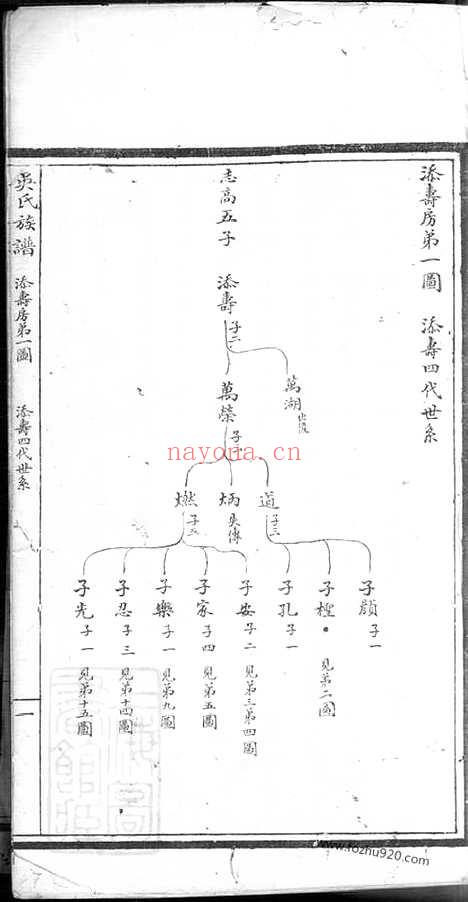 添壽房第一圖 添壽四代世系
志高五子 添壽
子二
萬湖
萬榮
子三
道 子三
炳 失傳
燃 子五
子顏 子一
子檉 見第二圖
子孔 子一
子安 子二 見第三第四圖
子家 子四 見第五圖
子樂 子一 見第九圖
子忍 子三 見第十四圖
子光 子一 見第十五圖
吳氏族譜 添壽房第一圖 添壽四代世系
一
nayona.cn
www.fozhu920.com